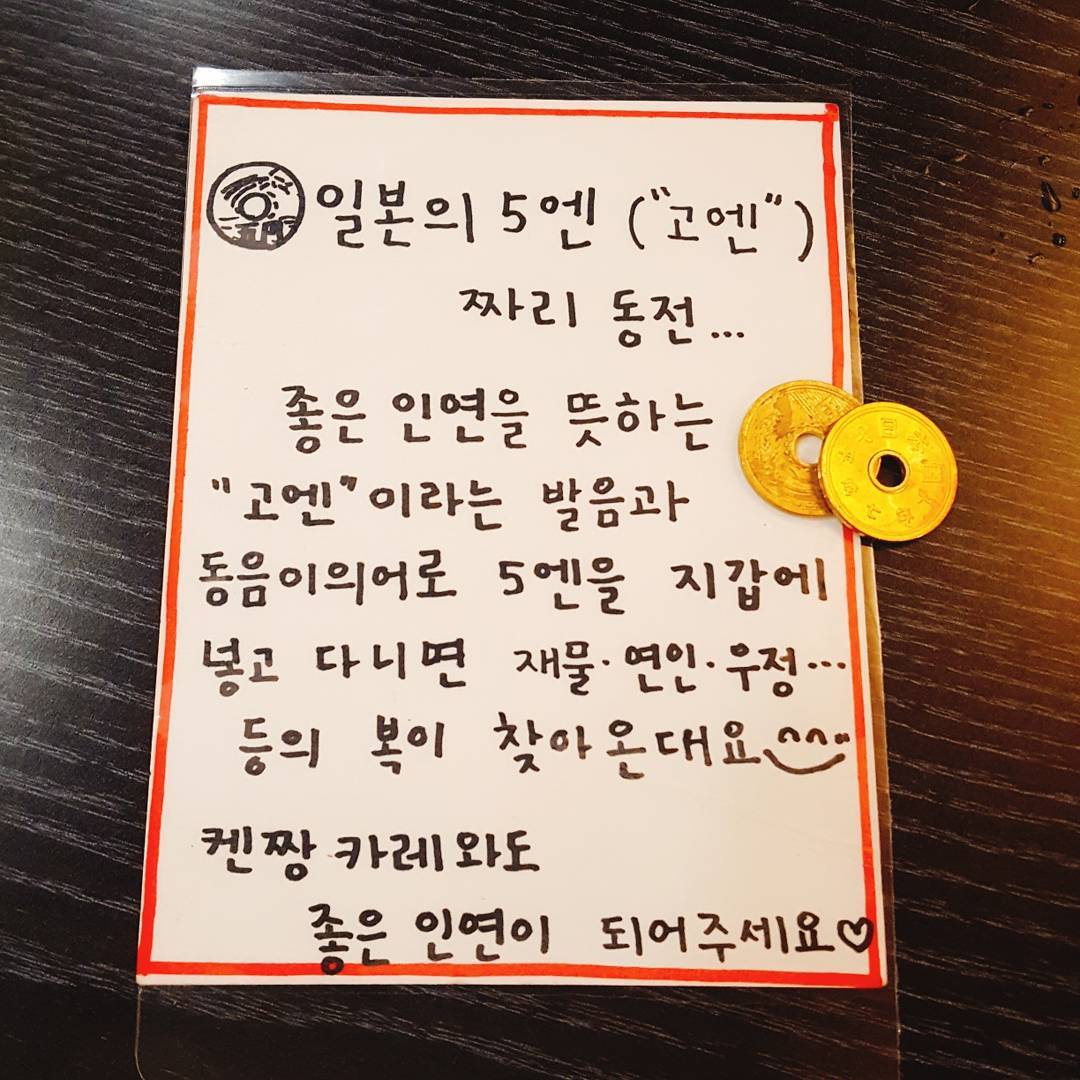 일본의 5엔 ("고엔")
짜리 동전...
좋은 인연을 뜻하는
"고엔"이라는 발음과
동음이의어로 5엔을 지갑에
넣고 다니면 재물·연인·우정...
등의 복이 찾아온대요^^
켄짱 카레와도
좋은 인연이 되어주세요♡